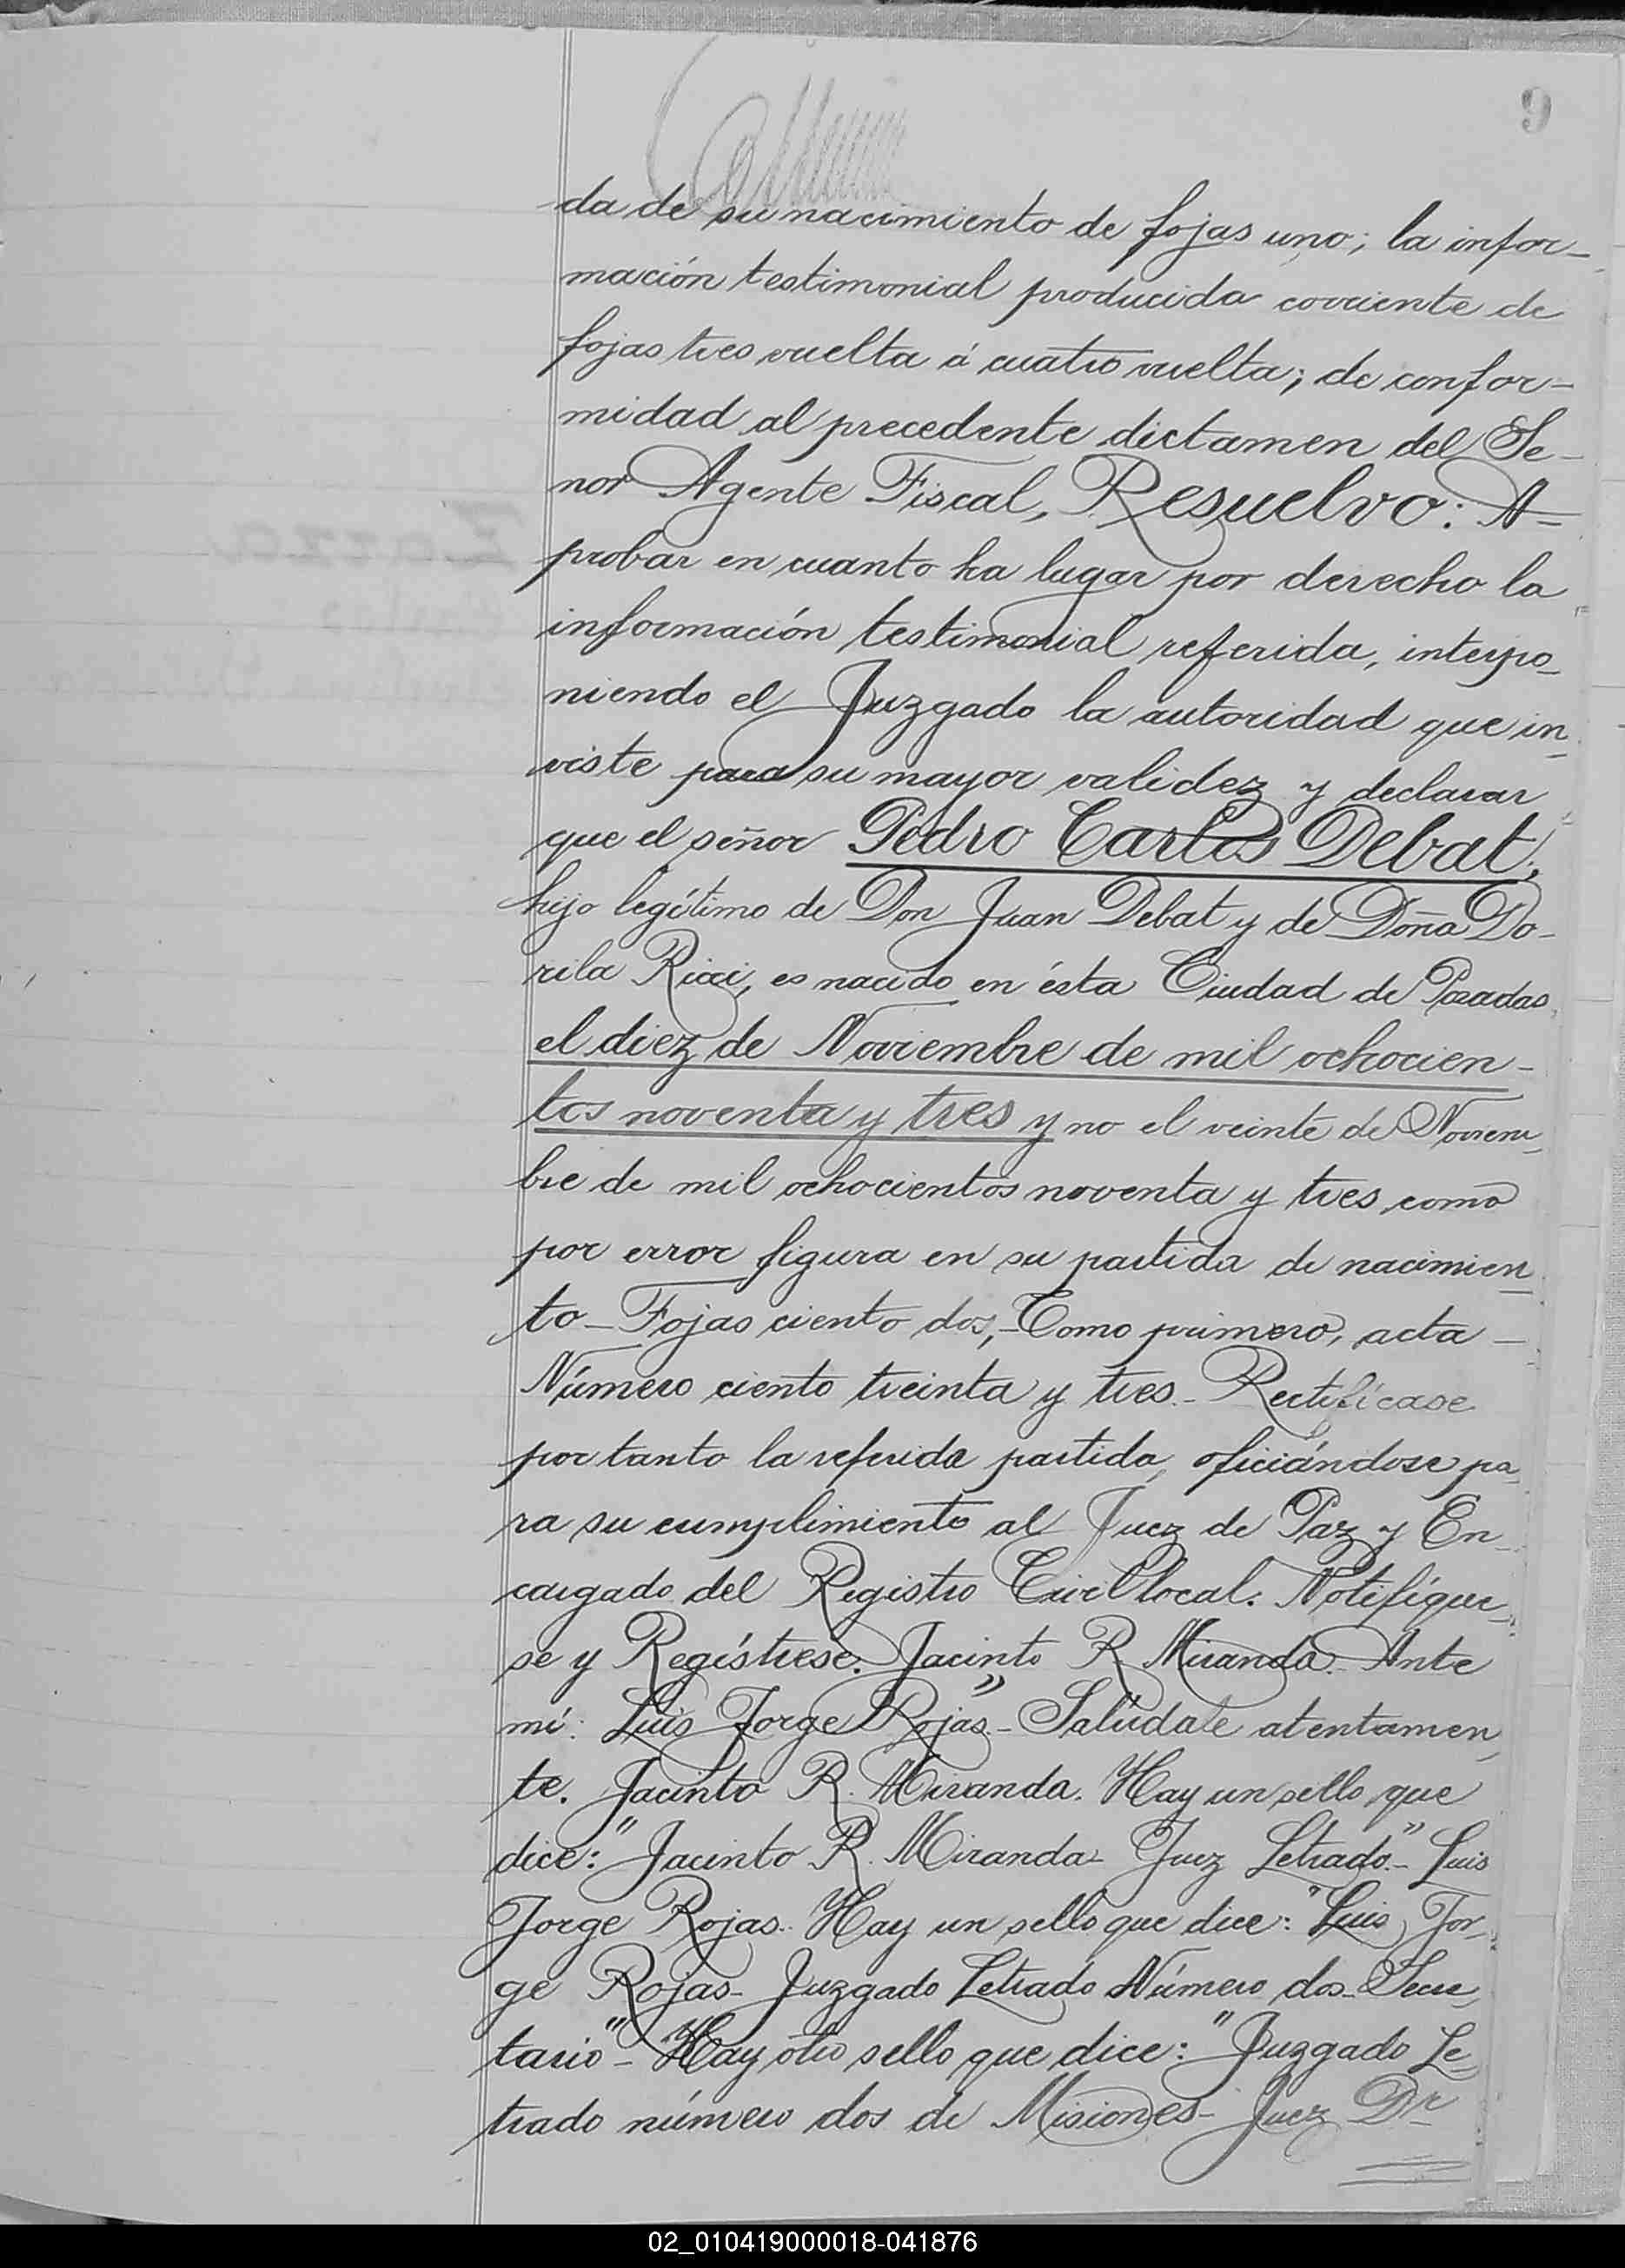 9
da de su nacimiento de fojas uno; la infor-
mación testimonial producida corriente de
fojas tres vuelta á cuatro vuelta; de confor-
midad al precedente dictamen del Se-
nor Agente Fiscal, Resuelvo: A-
probar en cuanto ha lugar por derecho la
información testimonial referida, interpo-
niendo el Juzgado la autoridad que in-
viste para su mayor validez y declarar
que el señor Pedro Carlos Debat,
hijo legítimo de Don Juan Debat y de Doña Do-
rila Ricci, es nacido en ésta Ciudad de Posadas,
el diez de Noviembre de mil ochocien-
tos noventa y tres y no el veinte de Noviem-
bre de mil ochocientos noventa y tres como
por error figura en su partida de nacimien-
to - Fojas ciento dos, - Tomo primero, acta -
Número ciento treinta y tres. - Rectifícase
por tanto la referida partida, oficiándose pa-
ra su cumplimiento al Juez de Paz y En-
cargado del Registro Civil local. Notifíque-
se y Regístrese. Jacinto R. Miranda. - Ante
mí: Luis Jorge Rojas". - Salúdale atentamen-
te. Jacinto R. Miranda. Hay un sello que
dice: "Jacinto R. Miranda - Juez Letrado". - Luis
Jorge Rojas. - Hay un sello que dice: "Luis Jor-
ge Rojas - Juzgado Letrado Número dos - Secre-
tario" - Hay otro sello que dice: "Juzgado Le-
trado número dos de Misiones - Juez Dr
02_010419000018-041876